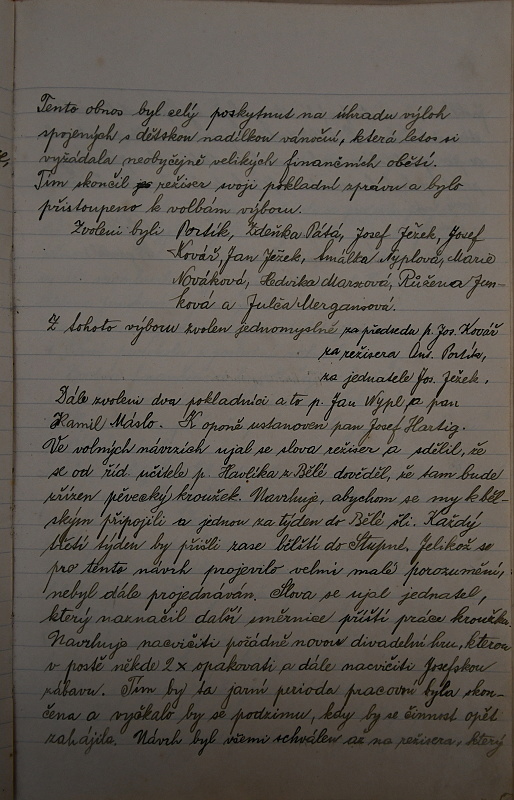 Tento obnos byl celý poskytnut na úhradu výloh
spojených s dětskou nadílkou vánoční, která letos si
vyžádala neobyčejně velikých finančních obětí.
Tím skončil režiser svoji pokladní zprávu a bylo
přistoupeno k volbám výboru.
Zvoleni byli Portík, Zdeňka Pátá, Josef Ježek, Josef
Kovář, Jan Ježek, Smálka Nyplová, Marie
Nováková, Hedvika Marxová, Růžena Jun-
ková a Julča Mergansová.
Z tohoto výboru zvolen jednomyslně za předsedu p. Jos. Kovář
za režisera Ant. Portík,
za jednatele Jos. Ježek.
Dále zvoleni dva pokladníci a to p. Jan Wypl a pan
Kamil Máslo. K oponě ustanoven pan Josef Hartig.
Ve volných návrzích ujal se slova režiser a sdělil, že
se od říd. učitele p. Havlíka z Bělé dověděl, že tam bude
zřízen pěvecký kroužek. Navrhuje, abychom se my k běl-
ským připojili a jednou za týden do Bělé šli. Každý
třetí týden by přišli zase bělští do Stupné. Jelikož se
pro tento návrh projevilo velmi malé porozumění,
nebyl dále projednáván. Slova se ujal jednatel,
který naznačil další směrnice příští práce kroužku.
Navrhuje nacvičiti pořádně novou divadelní hru, kterou
v postě někde 2x opakovati a dále nacvičiti Josefskou
zábavu. Tím by ta jarní perioda pracovní byla skon-
čena a vyčkalo by se podzimu, kdy by se činnost opět
zahájila. Návrh byl všemi schválen až na režisera, který